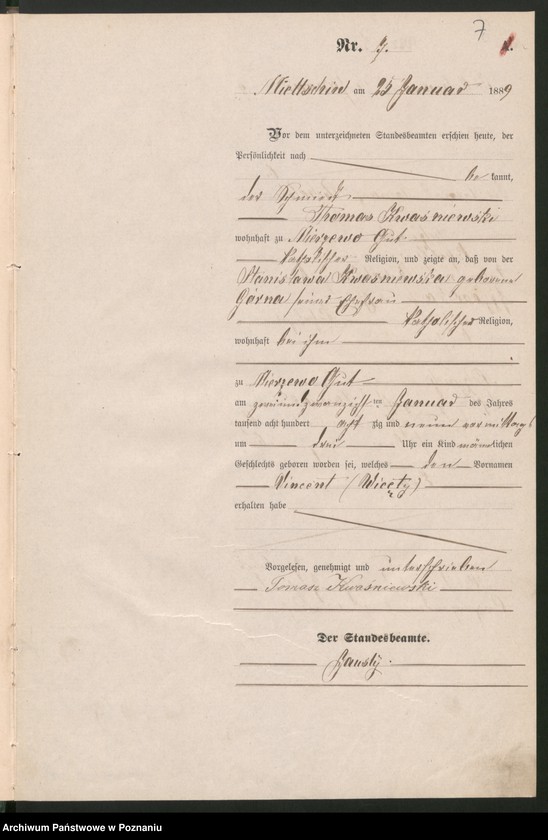 7
Nr. 7.
Miettschin am 25 Januar 1889
Vor dem unterzeichneten Standesbeamten erschien heute, der
Persönlichkeit nach be kannt,
der Schmied
Thomas Kwaśniewski
wohnhaft zu Mierzewo Gut
katholischer Religion, und zeigte an, daß von der
Stanisława Kwaśniewska geborene
Górna seiner Ehefrau
katholischer Religion,
wohnhaft bei ihm
zu Mierzewo Gut
am zweiundzwanzigsten Januar des Jahres
tausend acht hundert acht zig und neun vormittags
um drei Uhr ein Kind männlichen
Geschlechts geboren worden sei, welches den Vornamen
Vincent (Wicęty)
erhalten habe
Vorgelesen, genehmigt und unterschrieben
Tomasz Kwaśniewski
Der Standesbeamte.
Archiwum Państwowe w Poznaniu